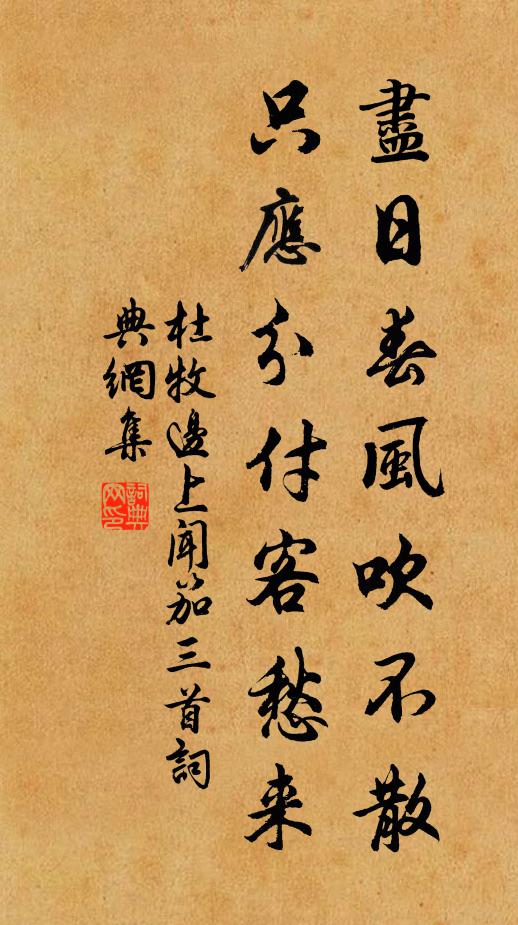 盡日春風吹不散
只應分付客愁来
杜牧邊上聞笳三首詞
典網集
詞典